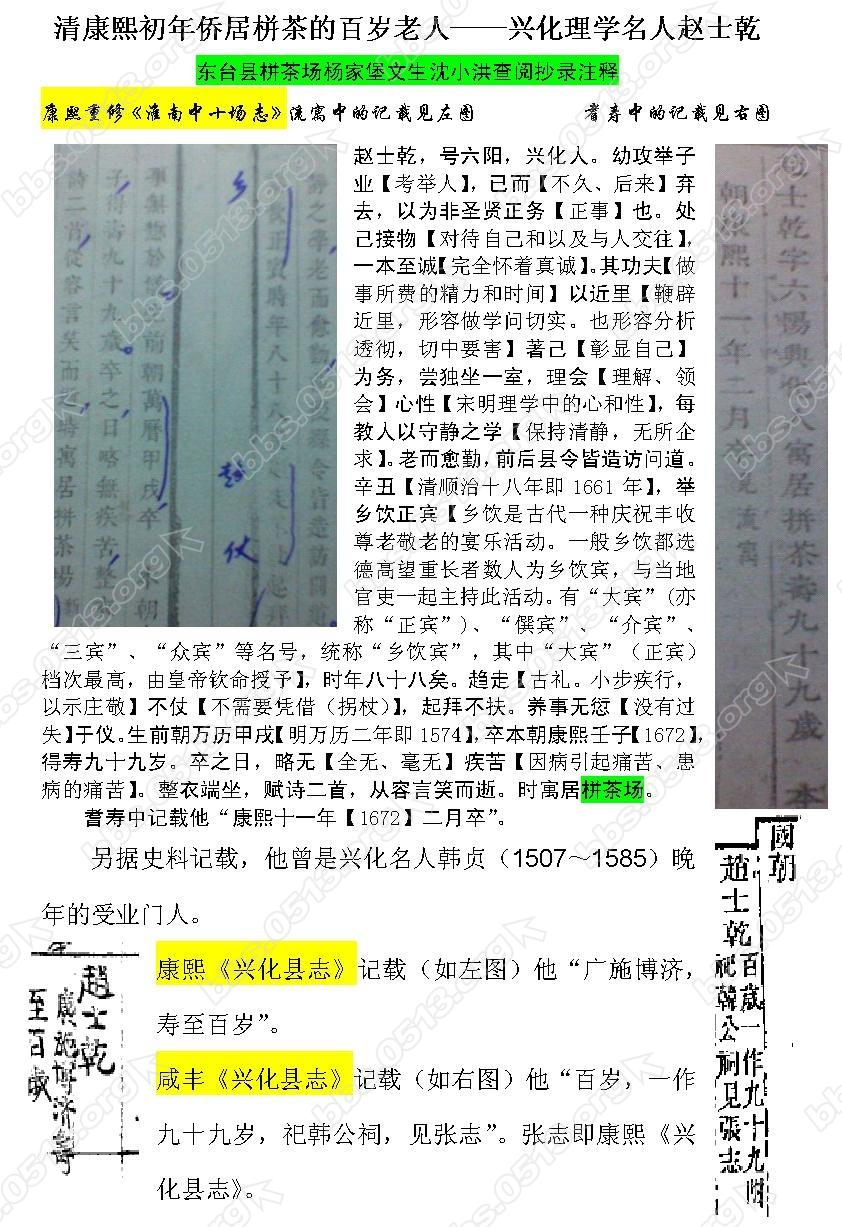 清康熙初年侨居栟茶的百岁老人——兴化理学名人赵士乾
东台县栟茶场杨家堡文生沈小洪查阅抄录注释
康熙重修《淮南中十场志》流寓中的记载见左图 耆寿中的记载见右图
赵士乾，号六阳，兴化人。幼攻举子
业【考举人】，已而【不久、后来】弃
去，以为非圣贤正务【正事】也。处
己接物【对待自己和以及与人交往】，
一本至诚【完全怀着真诚】。其功夫【做
事所费的精力和时间】以近里【鞭辟
近里，形容做学问切实。也形容分析
透彻，切中要害】著己【彰显自己】
为务，尝独坐一室，理会【理解、领
会】心性【宋明理学中的心和性】，每
教人以守静之学【保持清静，无所企
求】。老而愈勤，前后县令皆造访问道。
辛丑【清顺治十八年即 1661 年】，举
乡饮正宾【乡饮是古代一种庆祝丰收
尊老敬老的宴乐活动。一般乡饮都选
德高望重长者数人为乡饮宾，与当地
官吏一起主持此活动。有“大宾”（亦
称“正宾”）、“僎宾”、“介宾”、
“三宾”、“众宾”等名号，统称“乡饮宾”，其中“大宾”（正宾）
档次最高，由皇帝钦命授予】，时年八十八矣。趋走【古礼。小步疾行，
以示庄敬】不仗【不需要凭借（拐杖）】，起拜不扶。养事无愆【没有过
失】于仪。生前朝万历甲戌【明万历二年即 1574】，卒本朝康熙壬子【1672】，
得寿九十九岁。卒之日，略无【全无、毫无】疾苦【因病引起痛苦、患
病的痛苦】。整衣端坐，赋诗二首，从容言笑而逝。时寓居栟茶场。
耆寿中记载他“康熙十一年【1672】二月卒”。
另据史料记载，他曾是兴化名人韩贞（1507～1585）晚
年的受业门人。
康熙《兴化县志》记载（如左图）他“广施博济，
寿至百岁”。
咸丰《兴化县志》记载（如右图）他“百岁，一作
九十九岁，祀韩公祠，见张志”。张志即康熙《兴
化县志》。
前朝萬曆甲戌卒
子得壽九十九歲卒之日略無疾苦整
詩二首從容言笑而逝時寓居拼茶場
士乾字六陽興化人寓居拼茶壽九十九歲
朝康熙十一年二月卒見流寓
趙士乾
廣施博济壽
至百歲
國朝
趙士乾百歲一作九十九
祀韓公祠見張志
bbs.0513.org